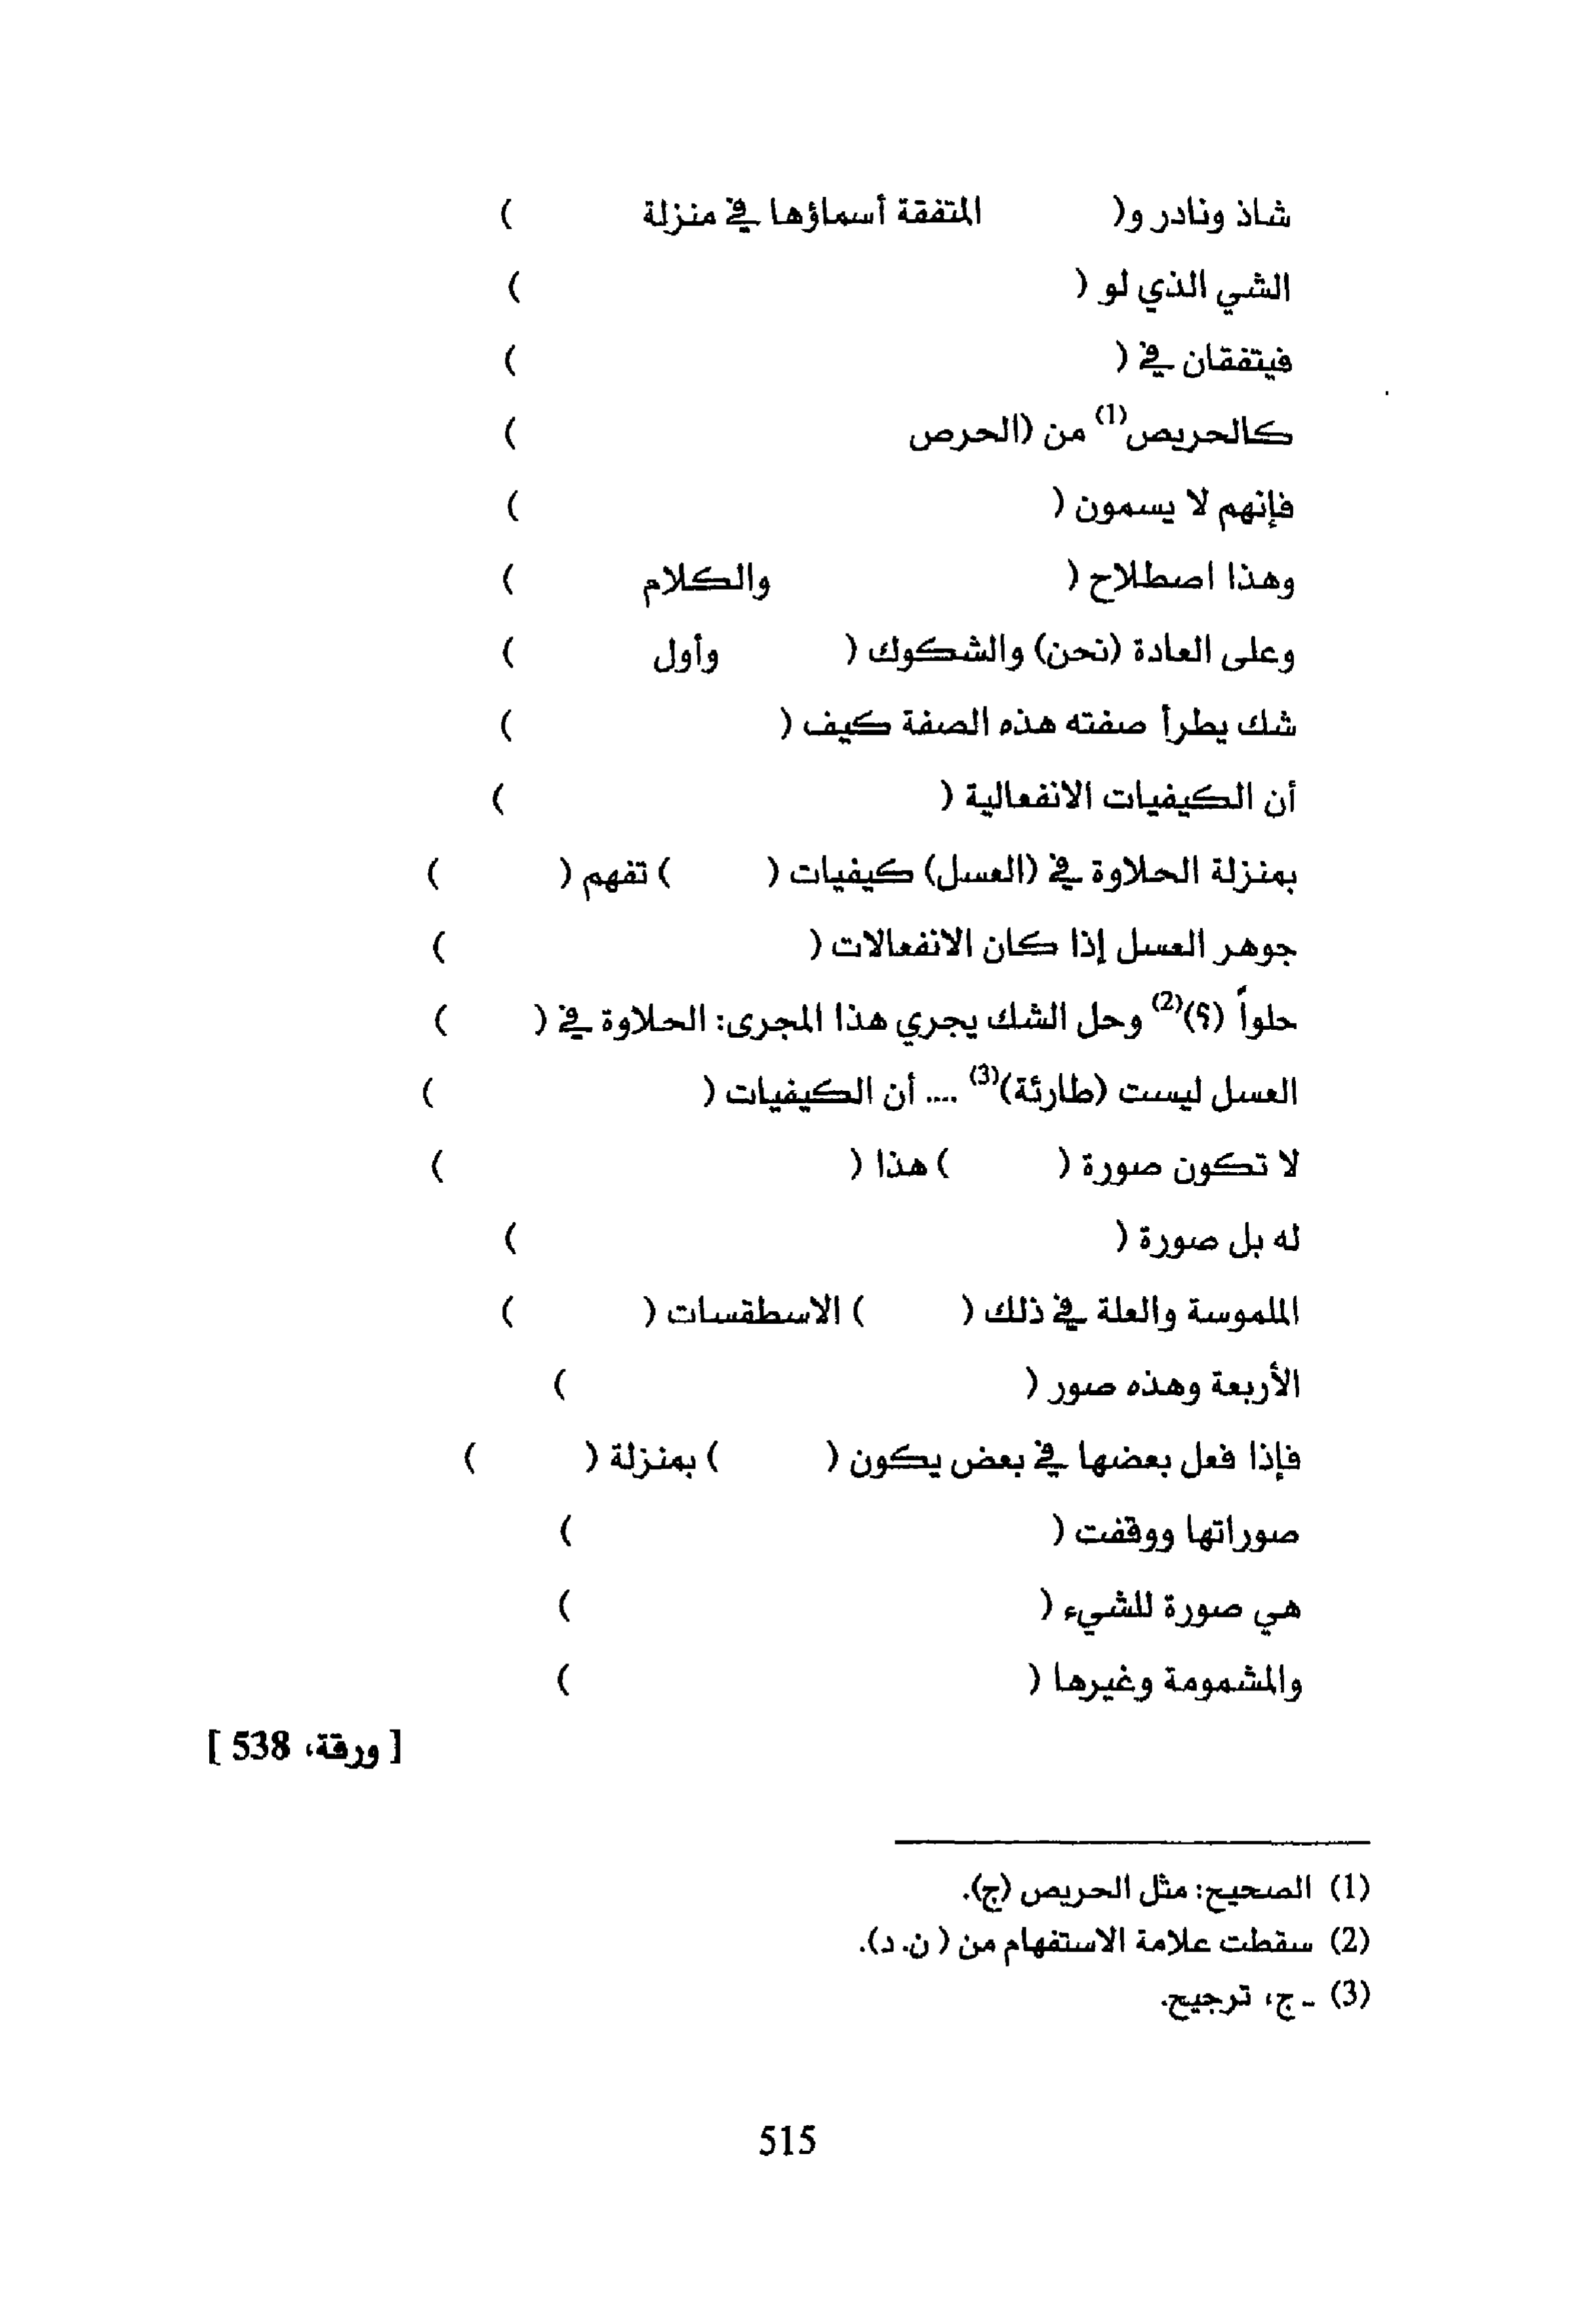 شاذ ونادر و( المتفقة أسماؤها في منزلة )
الشي الذي لو ( )
فيتفقان في ( )
كالحريص(1) من (الحرص )
فإنهم لا يسمون ( )
وهذا اصطلاح ( والكلام )
وعلى العادة (نحن) والشكوك ( وأول )
شك يطرأ صفته هذه الصفة كيف ( )
أن الكيفيات الانفعالية ( )
بمنزلة الحلاوة في (العسل) كيفيات ( ) تفهم ( )
جوهر العسل إذا كان الانفعالات ( )
حلواً (؟)(2) وحل الشك يجري هذا المجرى: الحلاوة في ( )
العسل ليست (طارئة)(3) .... أن الكيفيات ( )
لا تكون صورة ( ) هذا ( )
له بل صورة ( )
الملموسة والعلة في ذلك ( ) الاسطقسات ( )
الأربعة وهذه صور ( )
فإذا فعل بعضها في بعض يكون ( ) بمنزلة ( )
صوراتها ووقفت ( )
هي صورة للشيء ( )
والمشمومة وغيرها ( )
[ ورقة، 538 ]
(1) الصحيح: مثل الحريص (ج).
(2) سقطت علامة الاستفهام من ( ن. د).
(3) ـ ج، ترجيح.
515